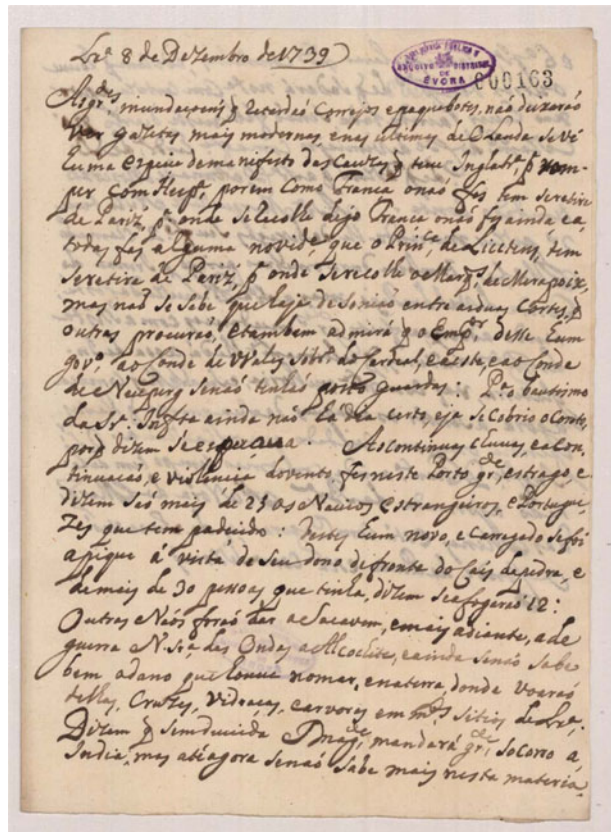 Lxª 8 de Dezembro de 1739
BIBLIOTECA PÚBLICA E
ARQUIVO DISTRITAL
DE
ÉVORA
000163
As grdes inundaçoens q retardaó Correjos e paquebotes, naó deixaraó
ver gazetas mais modernas, e nas ultimas de Olanda se vé
huma especie de manifesto das Cauzas q teve Inglatrª, pª rom-
per com Hespª, porem como França o naó fes tem se retire
de Pariz, pª onde se recolhe França o naó fes ainda, e a
todas fes alguma novide, que o Prince de Licctens, tem
se retire de Pariz, pª onde se recolhe o Marqs de Merapoix,
mas naó se sabe que haja desuniaó entre as duas Cortes, q
outros procuraó, e tambem admira q o Empor desse hum
govº ao Conde de
de Neuperg senaó tinhaó posto guardas: Pª o bautismo
da Srª Inftª ainda naó ha dia certo, e ja se cobrio o Coreto,
porq dizem se esperava. As continuas chuvas, e a con-
tinuaçaó, e violencia do vento fes neste Porto grde estrago, e
dizem seó mais de 250s Navios estrangeiros, e Portugue-
zes que tem padecido: destes hum novo, e carregado se foi
a pique á vista do seu dono defronte do Cais de pedra, e
de mais de 30 pessoas que tinha, dizem se afogaraó 12:
Outras Náos foraó dar a Sacavem, e mais adiante, a de
guerra N. Srª das Ondas a Alcochete, e ainda senaó sabe
bem o dano que houve no mar, e na terra, donde voaraó
telhas, Cruzes, vidraças, e arvores em mtos sitios de Lxª.
Dizem q sem duvida S Magde mandará grde socorro a
India, mas até agora senaó sabe mais nesta materia.